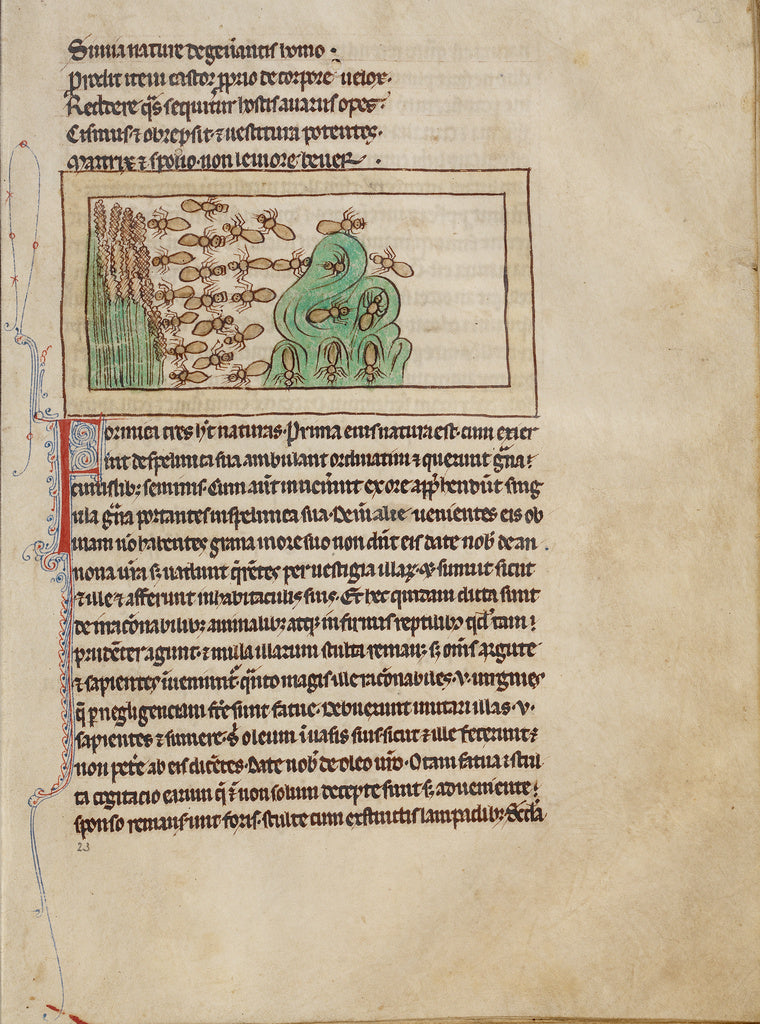 Simia nature degen̄antis homo .
Prodit item castor ꝓprio de corpore uelox.
Reddere q̄s sequitur hostis auarus opes.
Cisimus ⁊ obrepsit ⁊ uestitura potentes.
Martrix ⁊ spolio non leuiore beuer .
Formica tres hn̄t naturas. Prima eius natura est. cum exier
int de spelunca sua ambulant ordinatim ⁊ querunt gͣna
cuiuslibꝫ seminis. Cum aūt inuenerint ex ore app̄hendūt sing
ula gͣna portantes in spelunca sua. Dein̄ alie uenientes eis ob
uiam n̄o habentes grana in ore suo non dn̄t eis date nob̄ de an
nona ur̄a sꝫ uadunt q̄rētes per uestigia illaꝝ. ⁊ sumūt sicut
⁊ ille ⁊ afferunt in habitaculis suis. Et hec quidam dicta sunt
de irrac̄onabilibꝫ animalibꝫ atqꝫ infirmis reptilibꝫ qd̄ tam
prudēter agunt. ⁊ nulla illarum stulta remaīꝫ. sꝫ om̄s argute
⁊ sapientes īueniunt̄. q̄nto magis ille rac̄onabiles .v. uirgines
q̄ p̱ negligenciam fc̄e sunt fatue. Debuerunt imitari illas .v.
sapientes ⁊ sumere s̄ oleum ī uasis suis sicut ⁊ ille fecerunt ⁊
non pet̄e ab eis dicētes. Date nob̄ de oleo ur̄o. O tam fatua ⁊ stul
ta cogitacio earum q̄ ī non solum decepte sunt sꝫ adueniente
sponso remanserunt foris. stulte cum exstinctis lampadibꝫ. Sec̄da
23